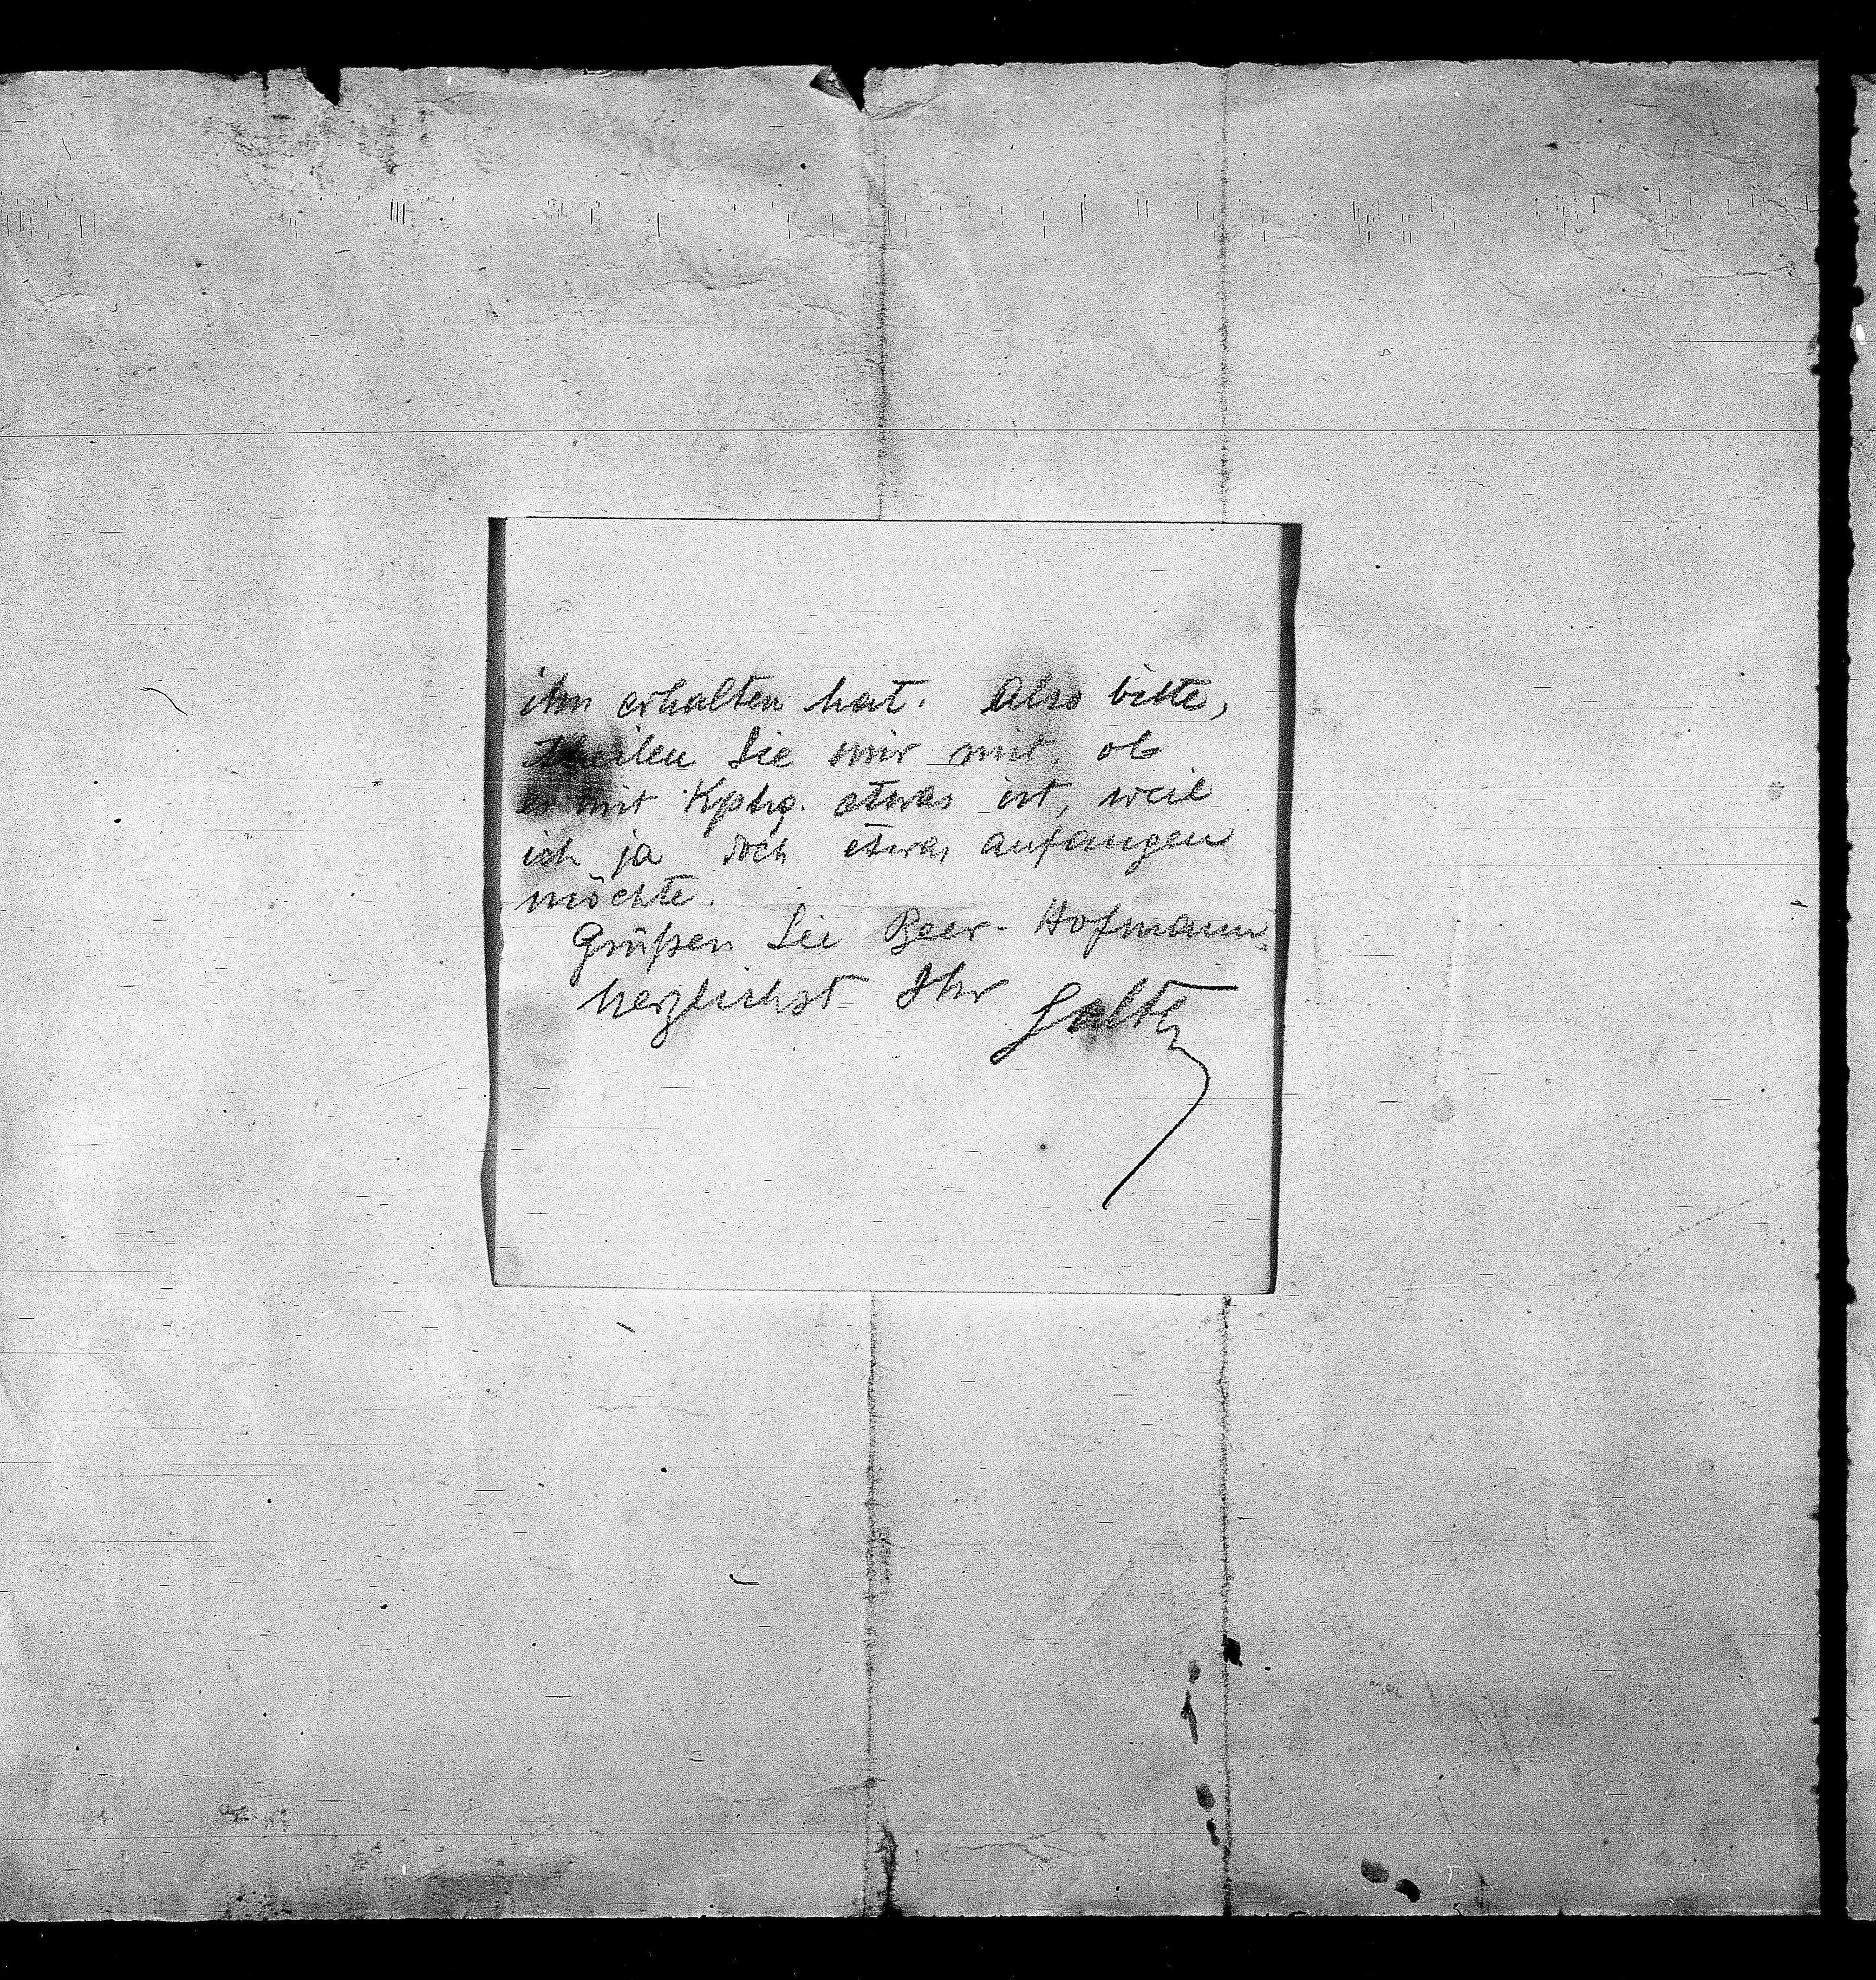 ihn erhalten hat. Also bitte,
theilen Sie mir mit, ob
es mit Kphg. etwas ist, weil
ich ja doch etwas anfangen
möchte.
Grüßen Sie Beer-Hofmann.
herzlichst Ihr Salten